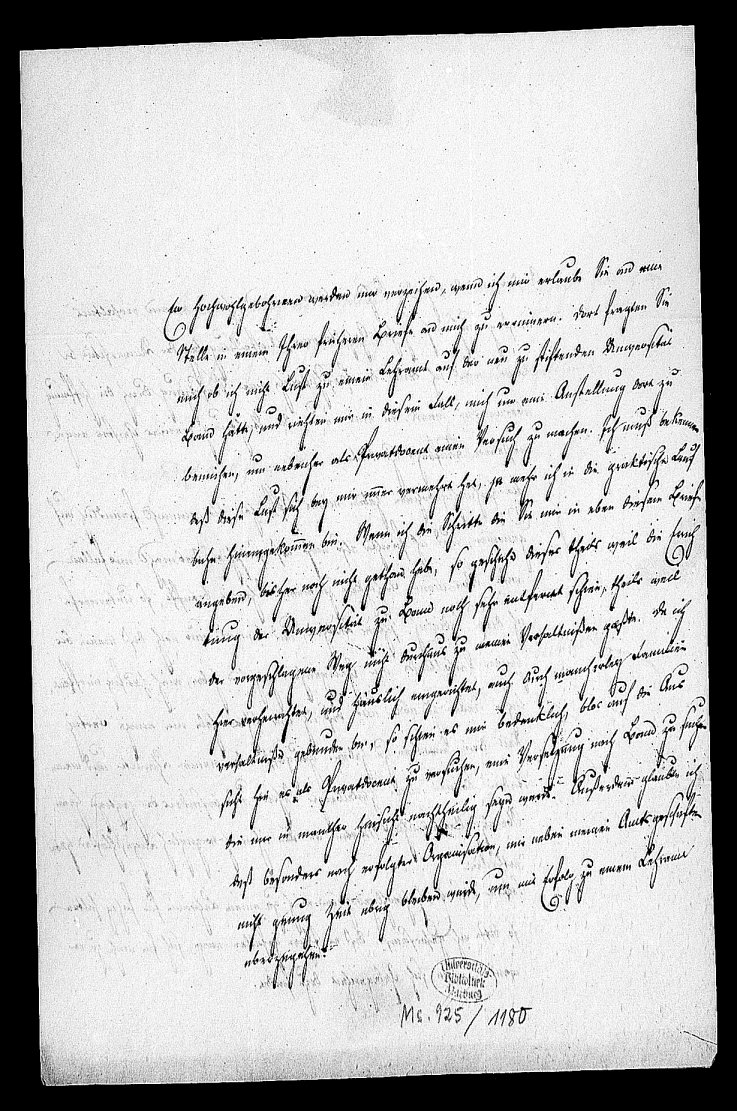 Ew Hochwohlgebohrnen werden mir verzeihen, wenn ich mir erlaube Sie an eine
Stelle in einem Ihrer früheren Briefe an mich zu erinnern. Dort fragten Sie
mich ob ich nicht Lust zu einem Lehramt auf der neu zu stiftenden Universität
Bonn hätte, und riethen mir in diesem Fall, mich um eine Anstellung dort zu
bemühen, um nebenher als Privatdocent einen Versuch zu machen. Ich muß bekennen
daß diese Lust sich bey mir immer vermehrt hat, je mehr ich in die praktische Lauf
bahn hineingekommen bin. Wenn ich die Schritte die Sie mir in eben diesem Briefe
angeben, bisher noch nicht gethan habe, so geschah dieses theils weil die Einrich
tung der Universität zu Bonn noch sehr entfernt schien, theils weil
der vorgeschlagene Weg nicht durchaus zu meinen Verhältnißen paßte. Da ich
hier verheirathet, und häuslich eingerichtet, auch durch mancherley Familien
verhältniße gebunden bin, so schien es mir bedenklich, blos auf die Aus
sicht hin es als Privatdocent zu versuchen, eine Versetzung nach Bonn zu suchen
die mir in mancher Hinsicht nachtheilig seyn würde. Außerdem glaubte ich
daß besonders nach erfolgter Organisation, mir neben meinen Amtsgeschäften
nicht genug Zeit übrig bleiben würde, um mit Erfolg zu einem Lehramt
überzugehen.
Universitäts
Bibliothek
Marburg
Ms. 925 / 1180